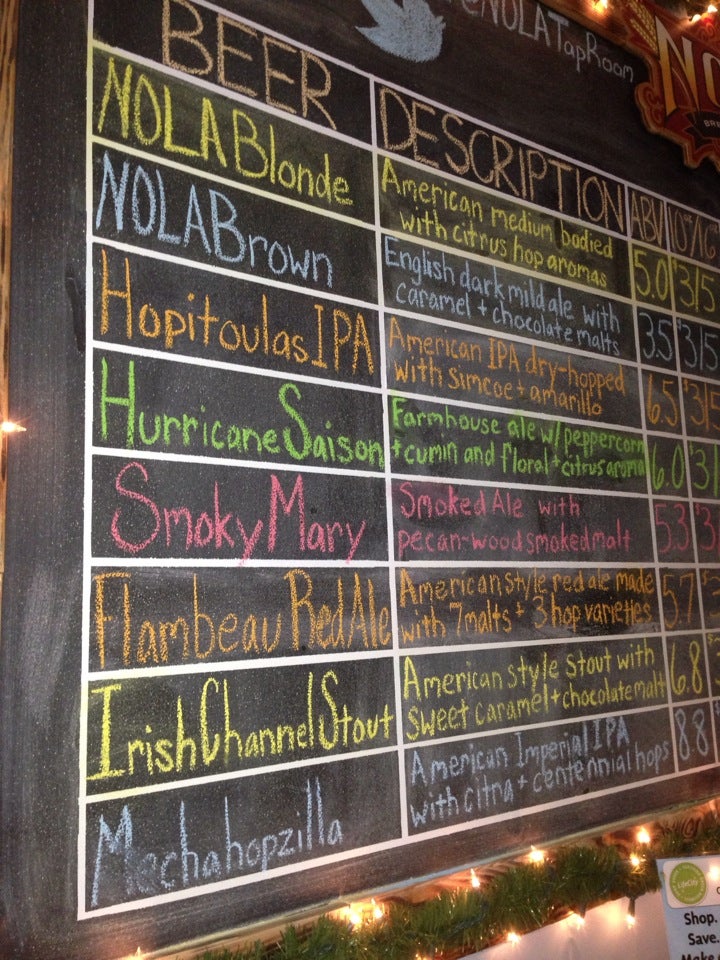 @NOLATapRoom
BEER DESCRIPTION ABV 10oz/16
NOLA Blonde American medium bodied
with citrus hop aromas 5.0 $3/5
NOLA Brown English dark mild ale with
caramel + chocolate malts 3.5 $3/5
Hopitoulas IPA American IPA dry-hopped
with simcoe + amarillo 6.5 $3/5
Hurricane Saison Farmhouse ale w/ peppercorn
+ cumin and floral + citrus aroma 6.0 $3/
Smoky Mary Smoked Ale with
pecan-wood smoked malt 5.3 $3/
Flambeau Red Ale American style red ale made
with 7 malts + 3 hop varieties 5.7
Irish Channel Stout American style stout with
sweet caramel + chocolate malt 6.8
Mechahopzilla American Imperial IPA
with citra + centennial hops 8.8
LifeCity
Shop.
Save.